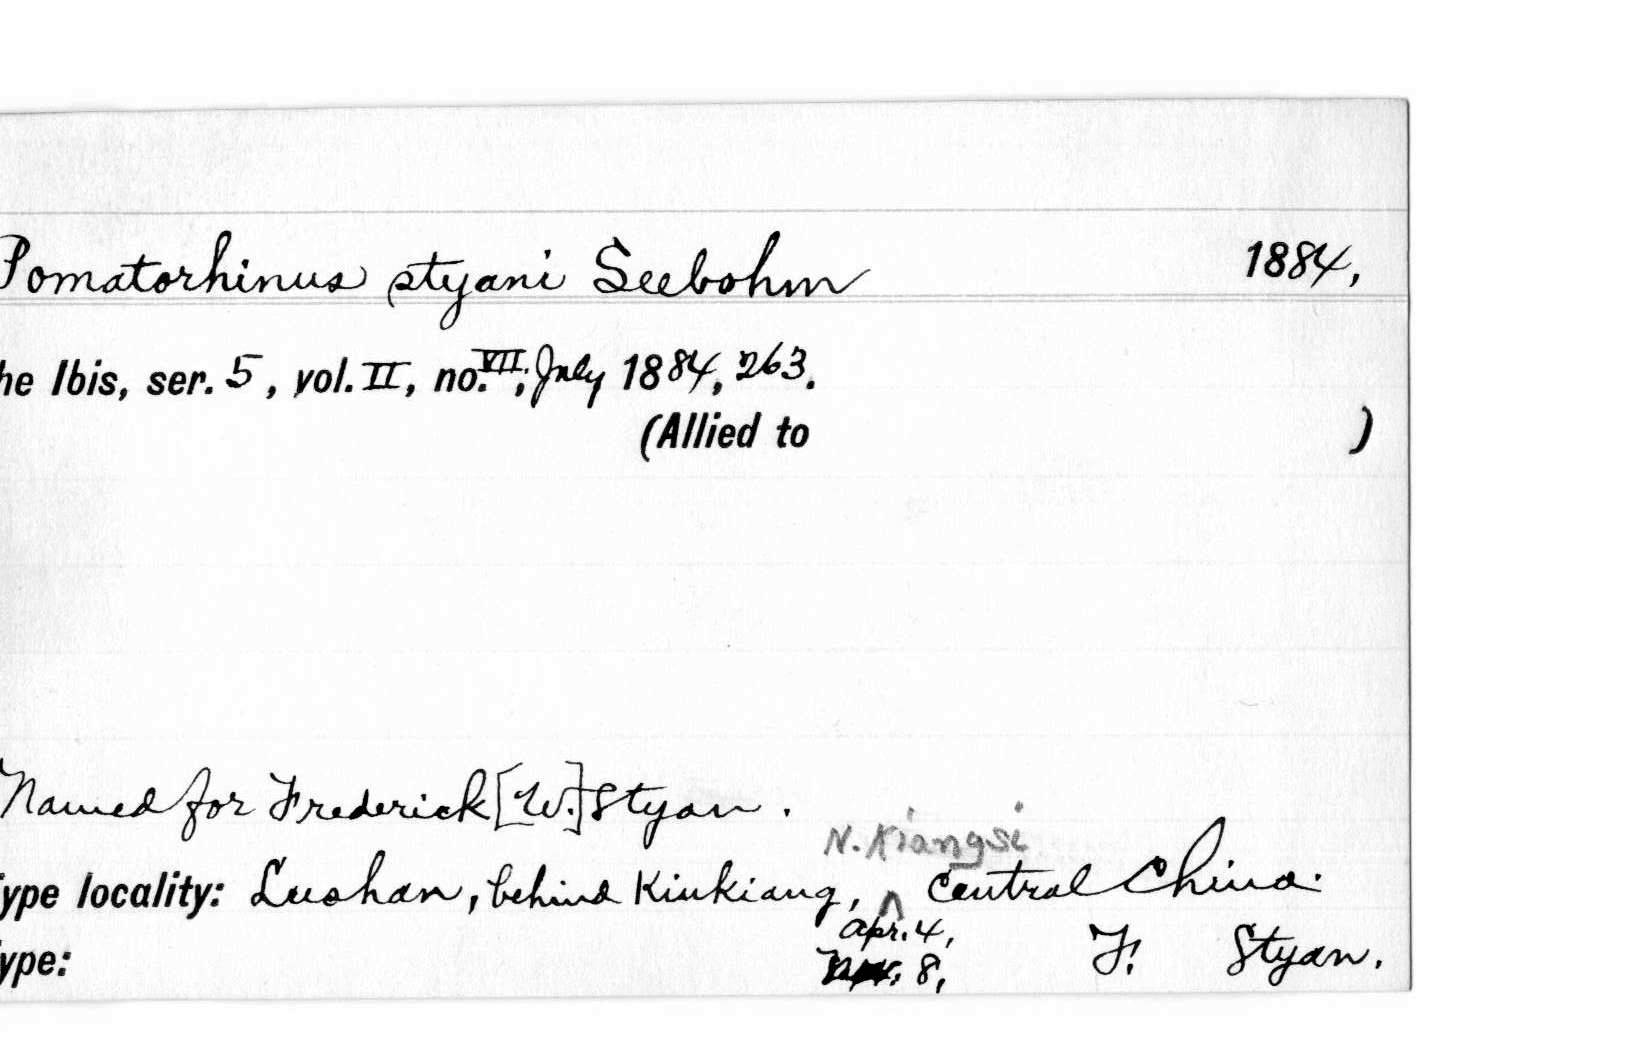 Pomatorhinus styani Seebohm 1884,
he Ibis, ser. 5, vol. II, no. VII, July 1884, 263.
(Allied to )
Named for Frederick [W.] Styan.
N. Kiangsi
ype locality: Lushan, behind Kiukiang, ^ Central China.
Apr. 4,
ype: 8, F. Styan.